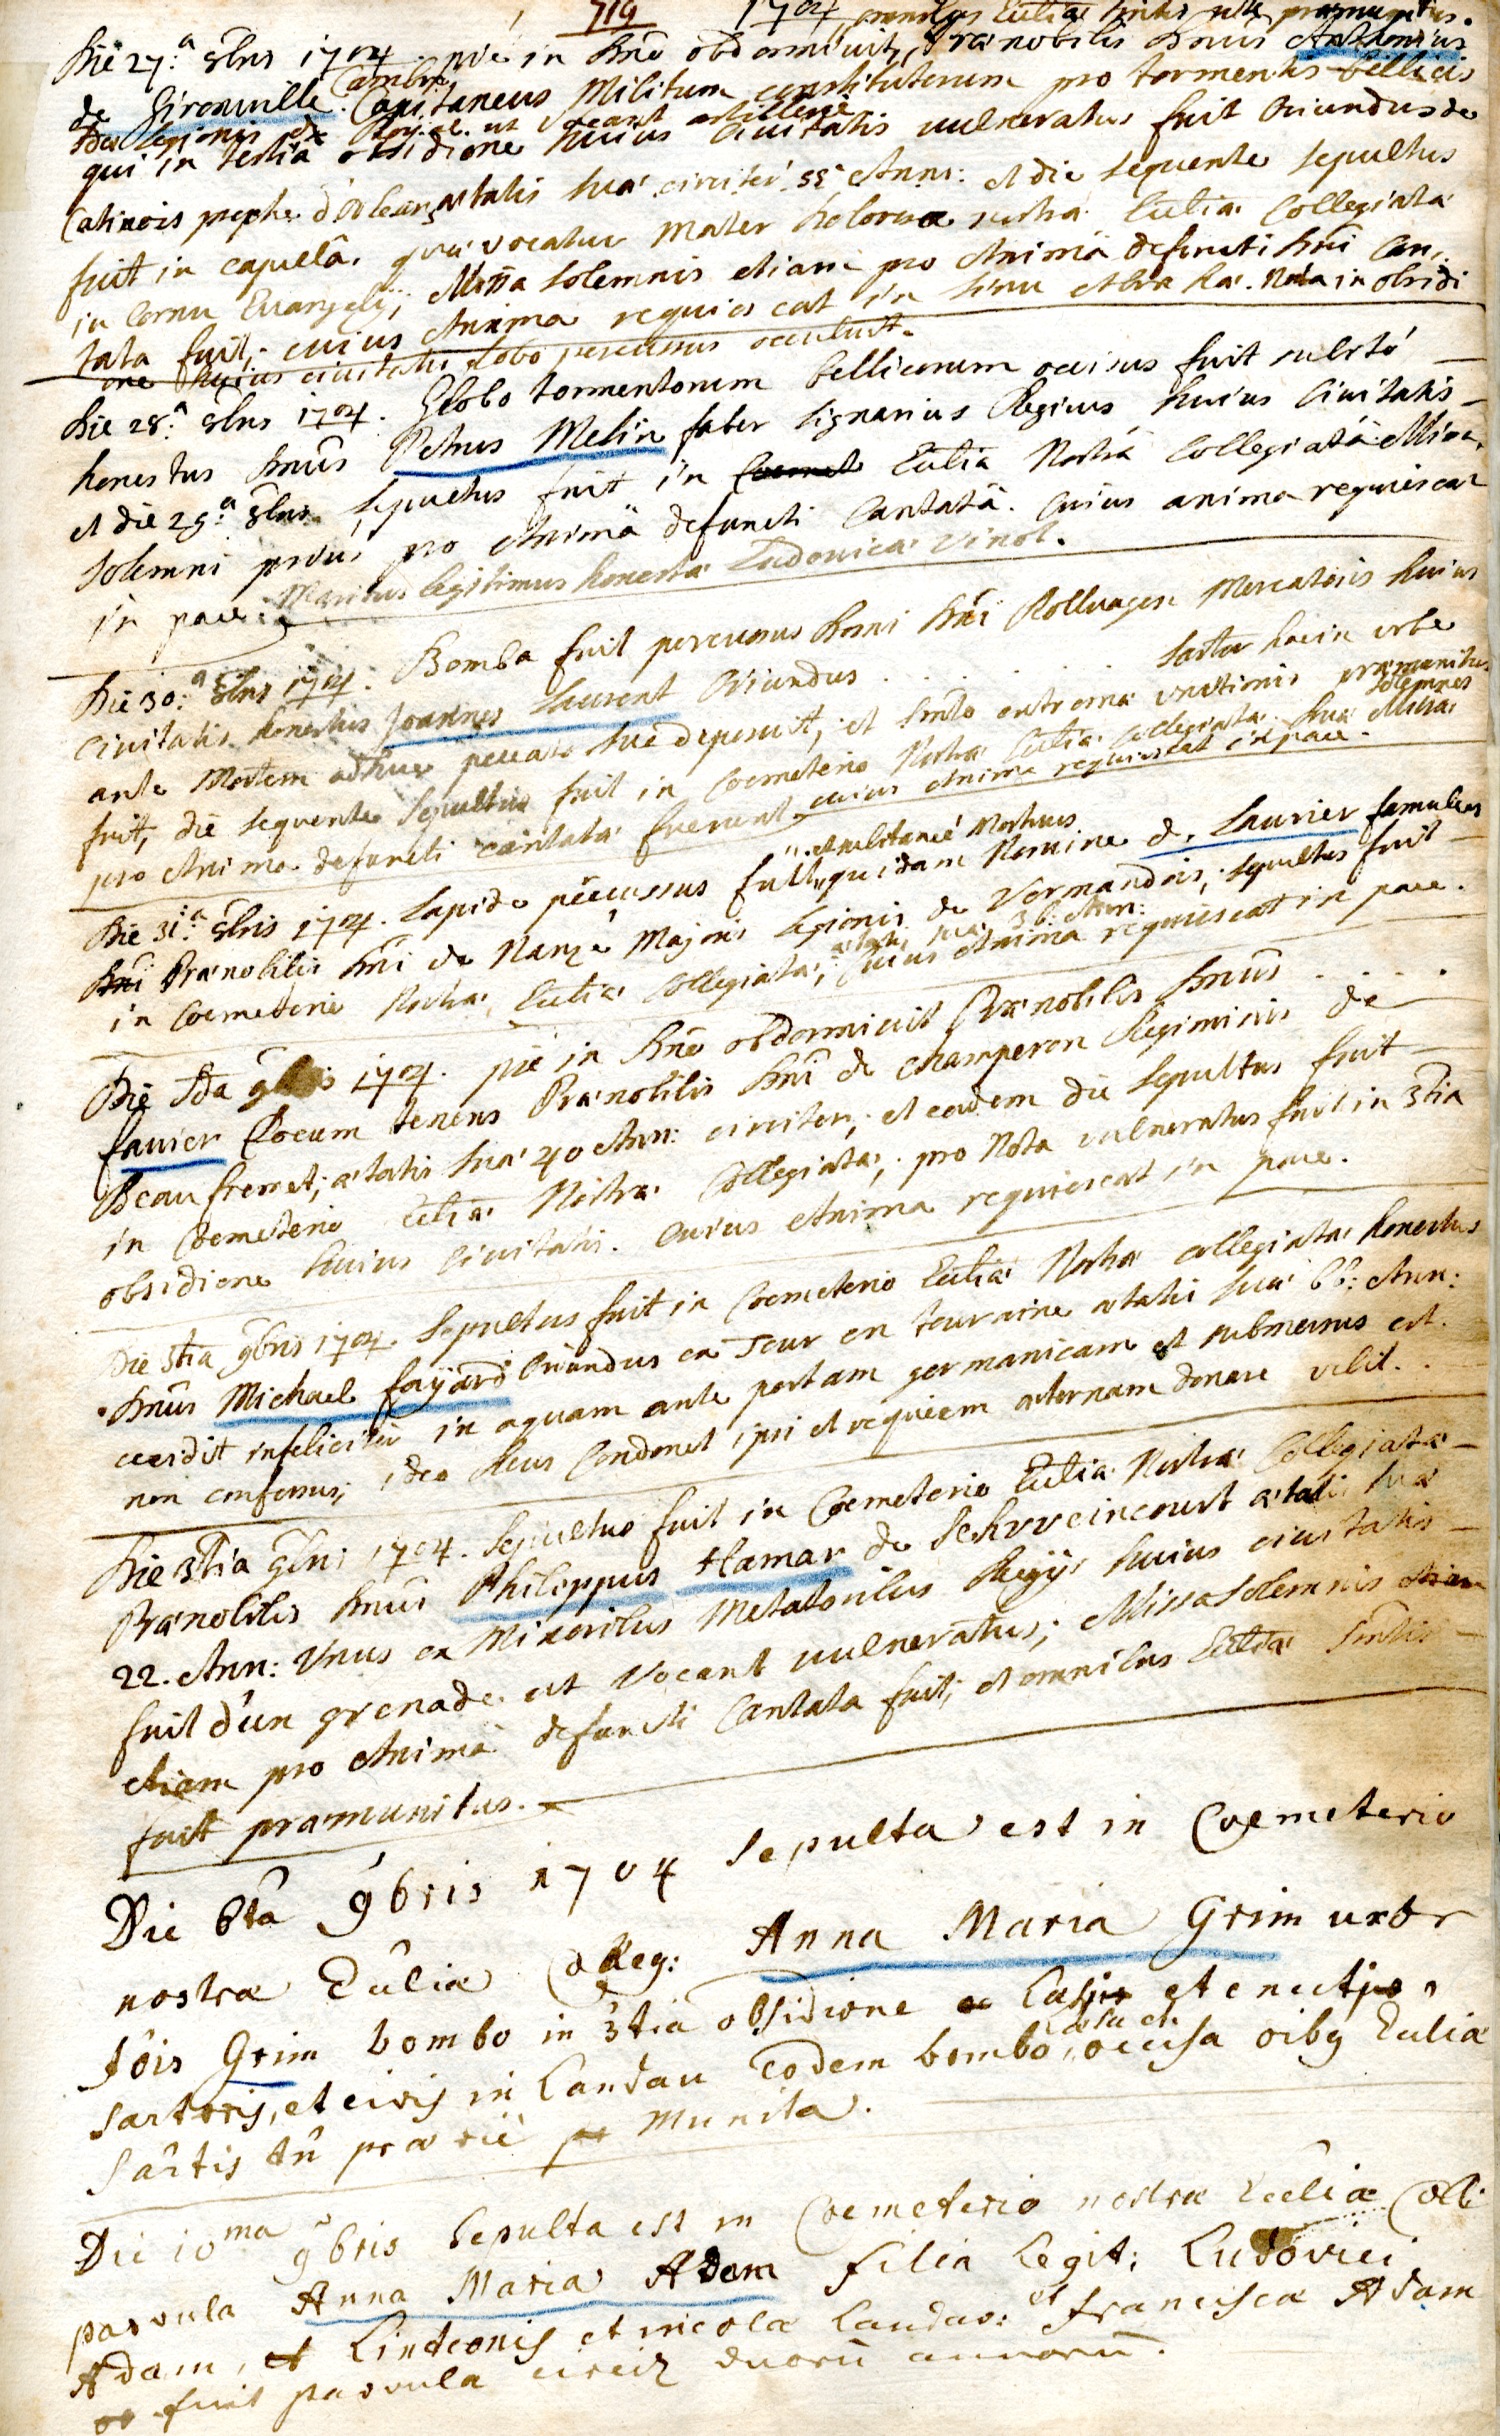 719 1704 omnibus Eccliae Sentis ritè praemunitus.
Die 27.a 8bris 1704 piè in Dno obdormivit, Praenobilis Dnus Anthonius
de Gironville Cambr. Capitaneus Militum constitutorum pro tormentis bellicis
des legionis de Royal ut vocant artillerie
qui in tertiâ obsidione huius Civitatis vulneratus fuit Oriundus de
Catinois prophe d'orleans aetatis suae circiter 55 Ann: et die sequente sepultus
fuit in capellâ, quae vocatur Mater dolorosa nostrae Eccliae Collegiatae
in Cornu Evangelij, Missa Solemnis etiam pro Animâ defuncti Dni Can,
tata fuit, cuius Anima requiescat in sinu Abrahae. Nota in obsidi
one huius civitatis globo percussus occubuit.
Die 28.a 8bris 1704. Globo tormentorum bellicorum occisus fuit subitò
honestus Dnus Petrus Melin faber lignarius Regius huius Civitatis
et die 29.a 8bris sepultus fuit in Coemet Eccliâ Nostrâ Collegiatâ Missâ
Solemni prius pro Animâ defuncti Cantatâ. Cuius anima requiescat
in pace. Maritus legitimus honestae Ludovicae Vinot.
Die 30.a 8bris 1704. Bomba fuit percussus Domi Dni Rollwagen Mercatoris huius
Civitatis honestus Joannes Laurent Oriundus . . . . . Sartor hac in urbe
ante Mortem adhuc peccata sua deposuit, et Sento extremae unctionis praemunitus
fuit, die sequente sepultus fuit in Coemeterio Nostrae Eccliae Collegiatae, duae Missae solemnes
pro Anima defuncti cantatae fuerunt, cuius Anima requiescat in pace.
Die 31.a 8bris 1704. Lapide percussus fuit, et subitaneè Mortuus quidam Nomine de Laurier famulus
Dni Praenobilis Dni de Nanze Majoris legionis de Vermandois, sepultus fuit
in Coemeterio Nostrae Eccliae Collegiatae, aetatis suae 36 Ann: Cuius Anima requiescat in pace.
Die 2da 9bris 1704. piè in Dno obdormivit Praenobilis Dnus . . . .
favier Locum tenens Praenobilis Dni de champeron Regiminis de
Beaufremet, aetatis suae 40 Ann: circiter, et eadem die sepultus fuit
in Coemeterio Eccliae Nostrae Collegiatae, pro Nota vulneratus fuit in 3tia
obsidione huius Civitatis. Cuius Anima requiescat in pace.
Die 3tia 9bris 1704. Sepultus fuit in Coemeterio Eccliae Nostrae collegiatae honestus
Dnus Michael fayard Oriundus ex Tour en touraine aetatis suae 66: Ann:
cecidit infeliciter in aquam ante portam germanicam et submersus est.
non confessus, ideo Deus Condonet ipsi et requiem aeternam donare velit.
Die 3tia 9bris 1704. Sepultus fuit in Coemeterio Eccliae Nostrae Collegiatae
Praenobilis Dnus Philippus Hamar de Schvveincourt aetatis suae
22. Ann: Unus ex Minoribus Metatoribus Regijs huius civitatis
fuit d'un grenade ut Vocant vulneratus, Missa Solemnis etiam
etiam pro Animâ defuncti Cantata fuit, et omnibus Eccliae Sentis
fuit praemunitus.
Die 6ta 9bris 1704 Sepulta est in Coemeterio
nostrae Eccliae Colleg: Anna Maria Grim uxor
Jois Grim bombo in 3tia obsidione et
Sartoris, et civis in Landau eodem bombo laesa et occisa oibg Eccliae
Sactis tn prae viè munita.
Die 10ma 9bris Sepulta est in Coemeterio nostrae Eccliae Colli
parvula Anna Maria Adam filia legit: Ludovici
Adam, et Linteonis et incolae Landav: et franciscae Adam
fuit parvula circit duorū annorū.